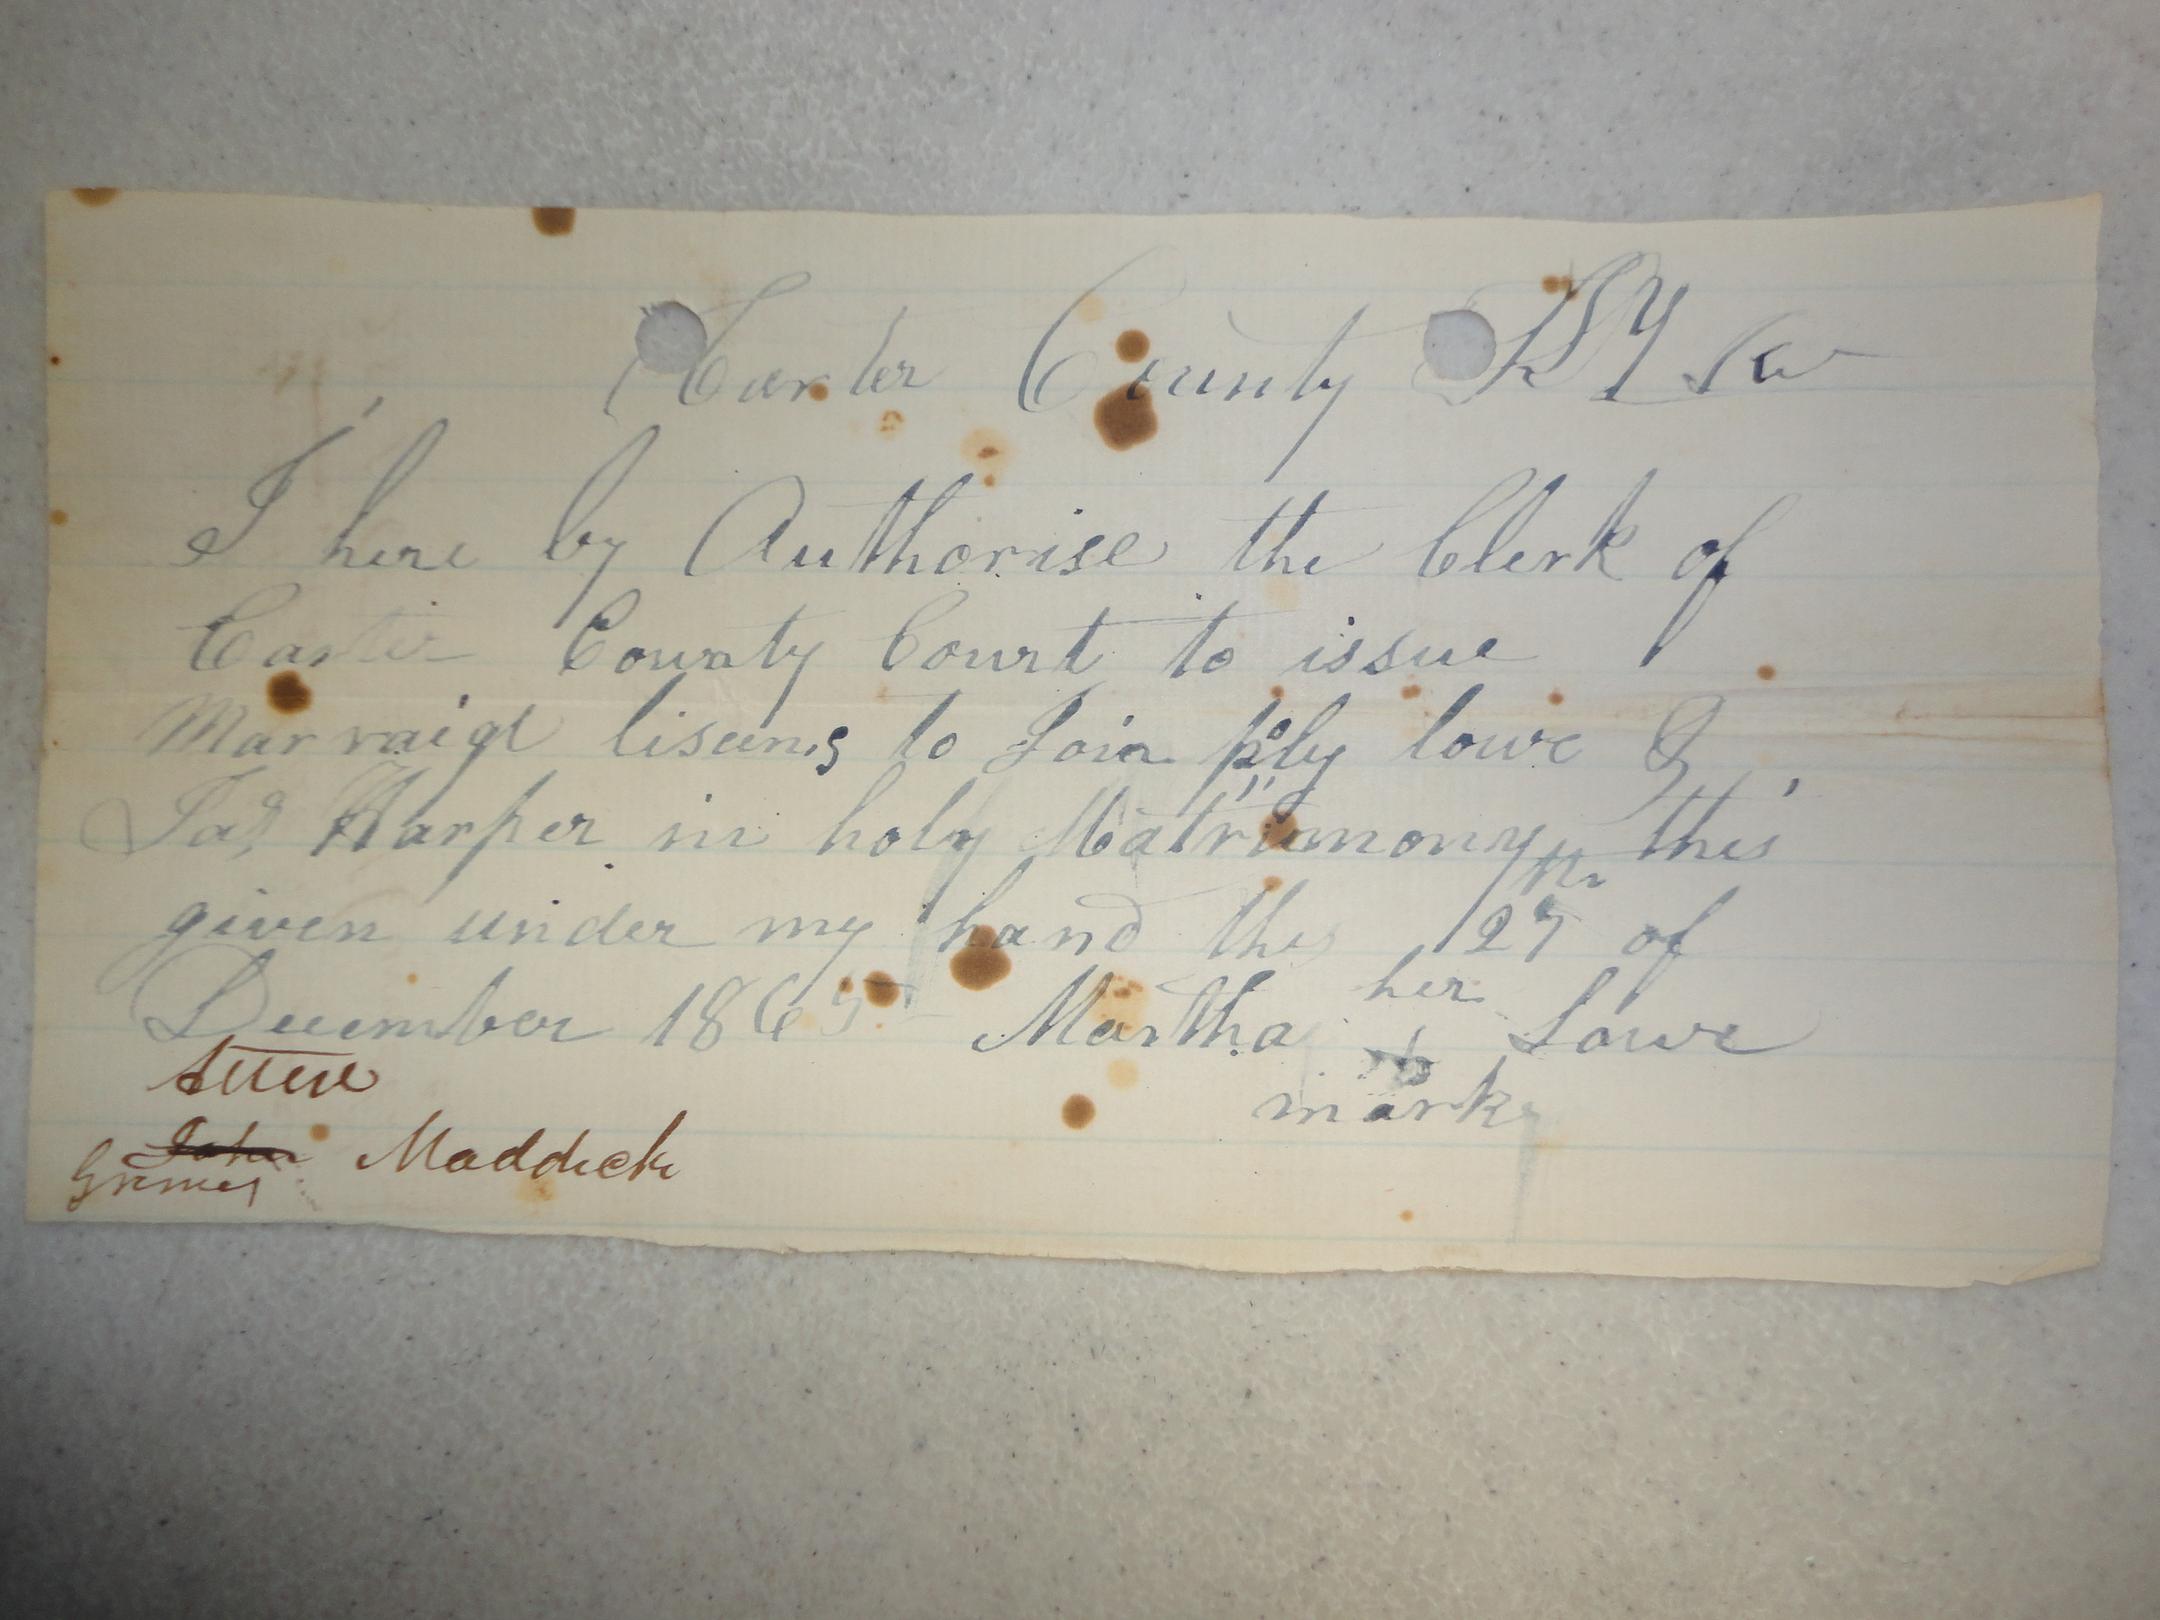 Carter County KY
I here by Authorise the Clerk of
Carter County Court to issue
Marraige lisens to Join lowe &
Jas Harper in holy Matrimony this
given under my hand this 27th of
December 1865 Martha her Lowe
mark
Attest
John Maddick